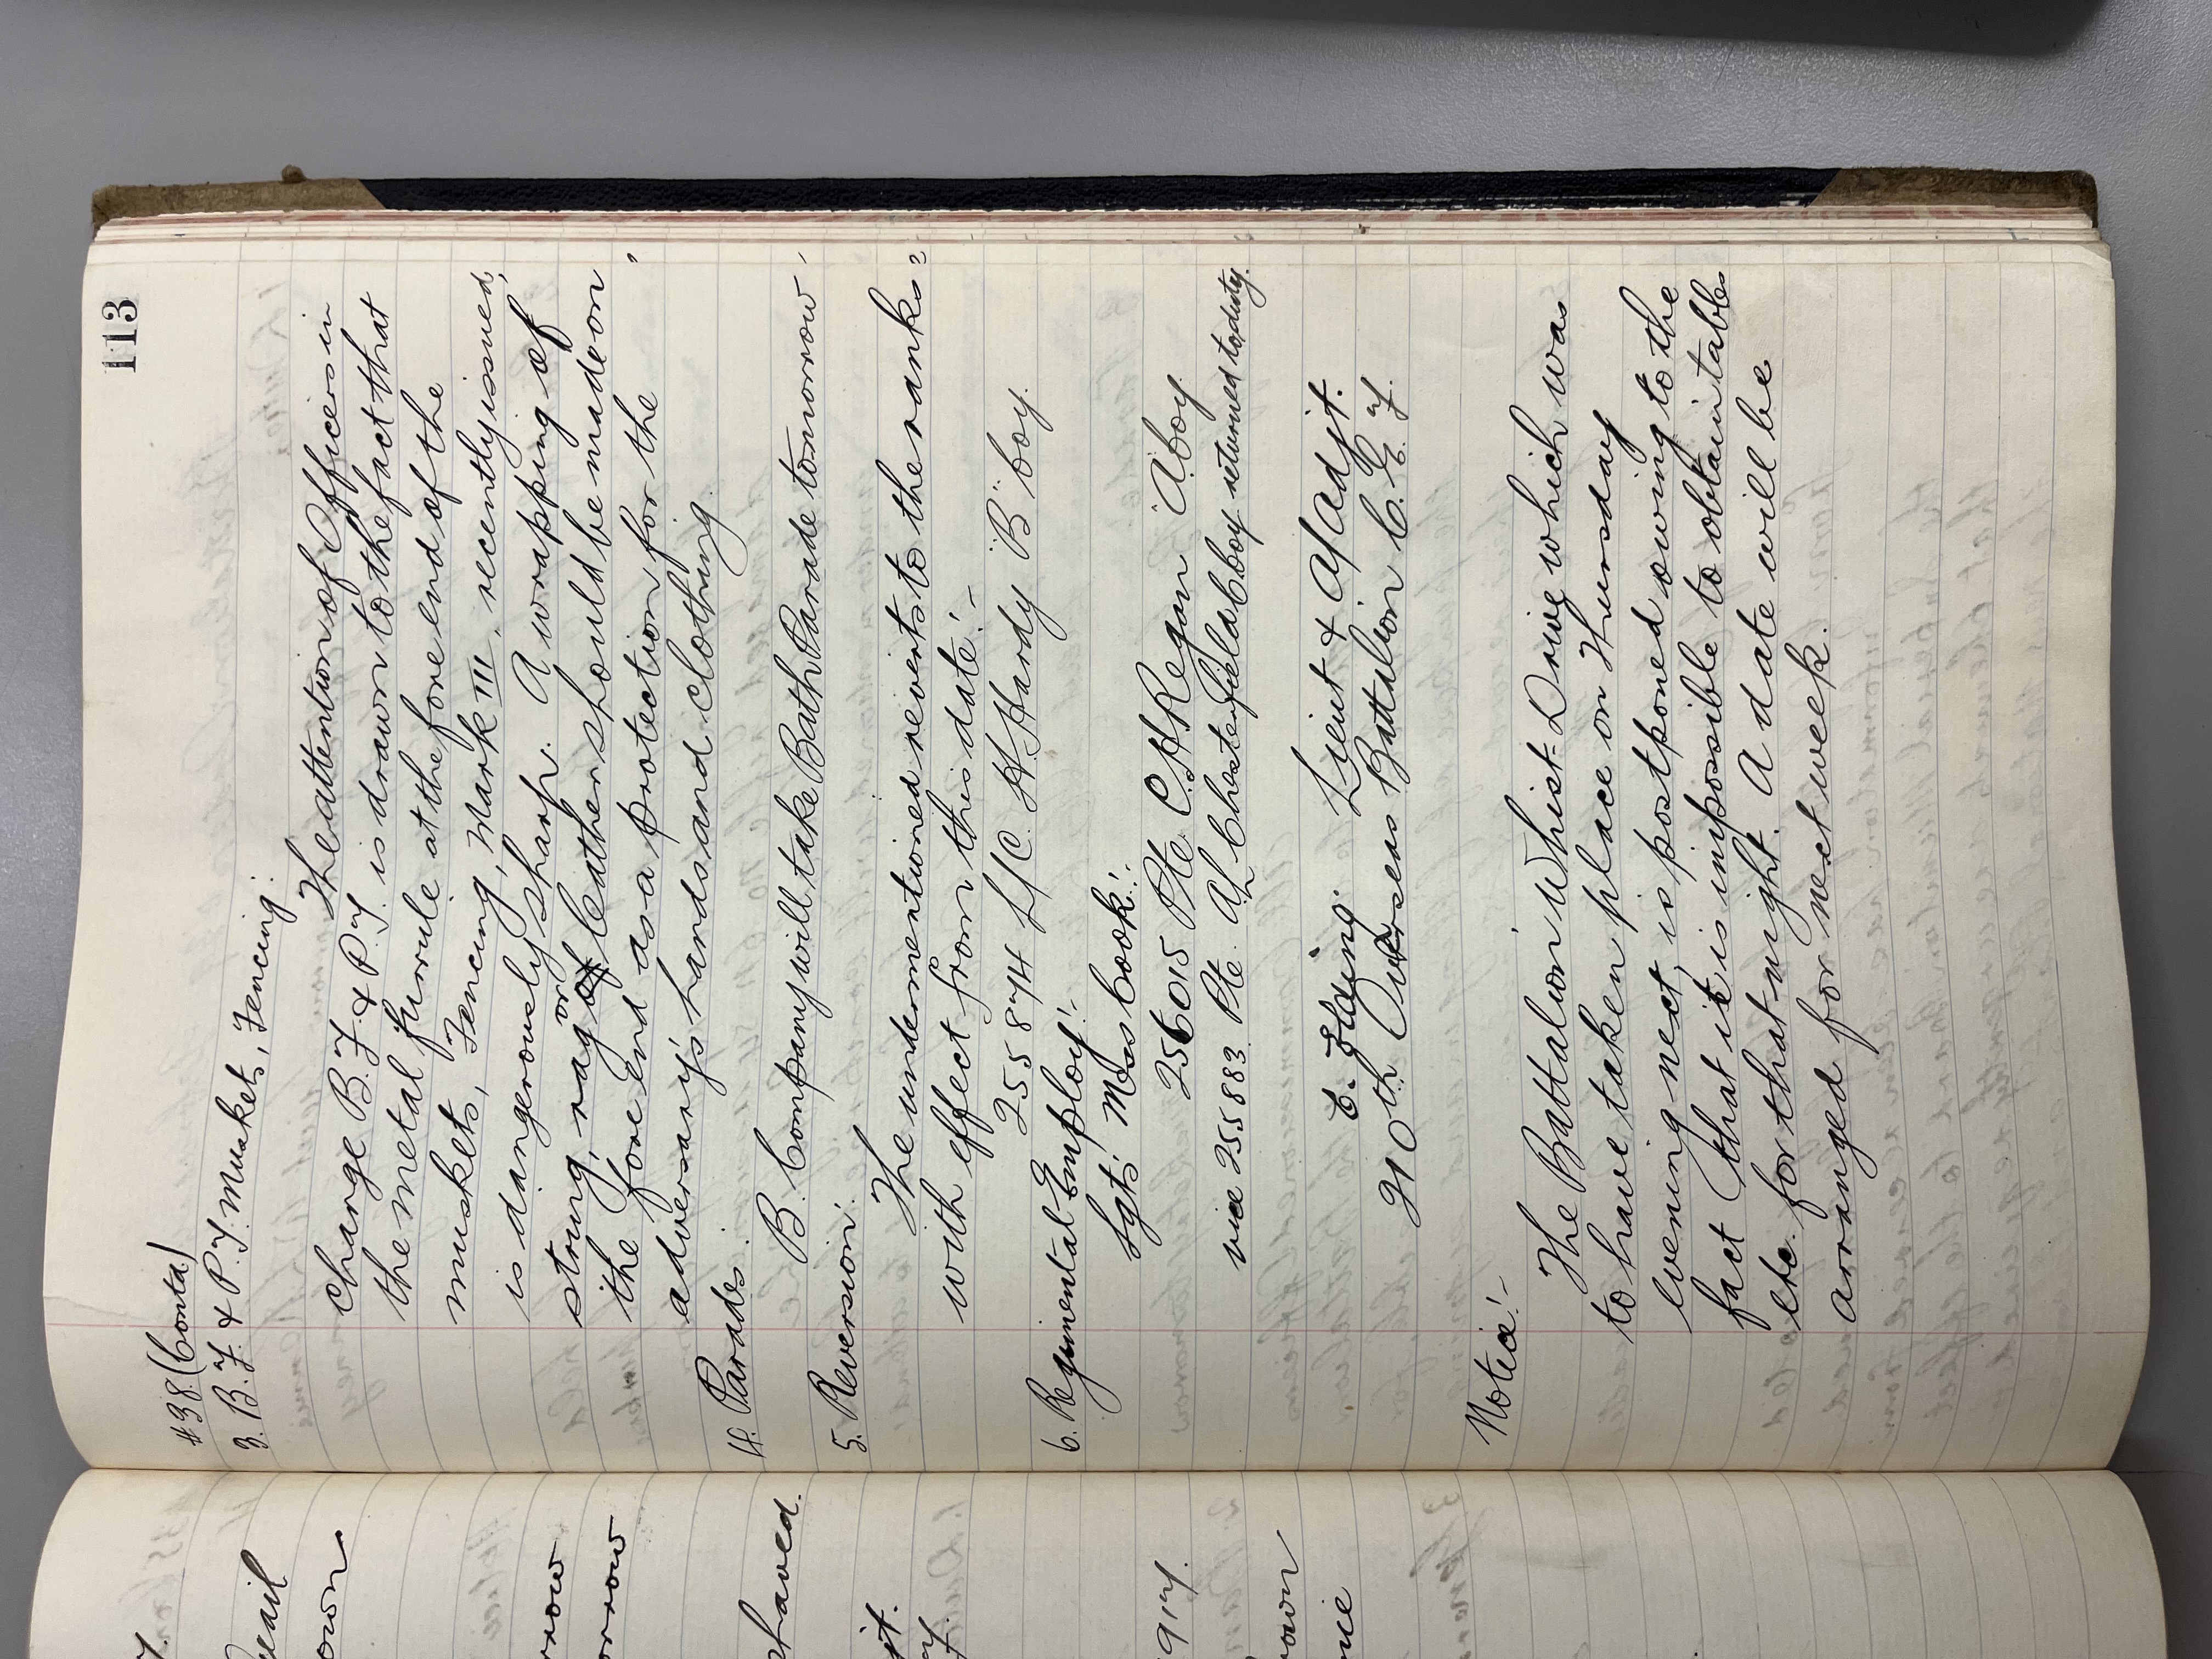 113
#38 (Contd)
3. B.F. & P.T. Muskets, Fencing:
The attention of Officers in
charge B.F. & P.T. is drawn to the fact that
the metal furrule at the fore end of the
muskets, Fencing, Mark III, recently issued,
is dangerously sharp. A wrapping of
string, rag or of leather should be made on
the fore end as a protection for the
adversary's hands and clothing.
4. Parades.
B. Company will take Bath Parade tomorrow.
5. Reversion.
The undermentioned reverts to the ranks
with effect from this date:-
255874 L/C. H. Hardy "B" Coy.
6. Regimental Employ:-
Sgts' Mess Cook:-
256015 Pte C.H Regan "A" Coy.
vice 255883 Pte. A.L Chesterfield C Coy returned to duty.
Lieut & A/Adjt.
210th Overseas Battalion C.E.F.
Notice:-
The Battalion Whist-Drive which was
to have taken place on Thursday
evening next, is postponed owing to the
fact that it is impossible to obtain tables
etc. for that night. A date will be
arranged for next week.
own
rrow
orrow
shaved.